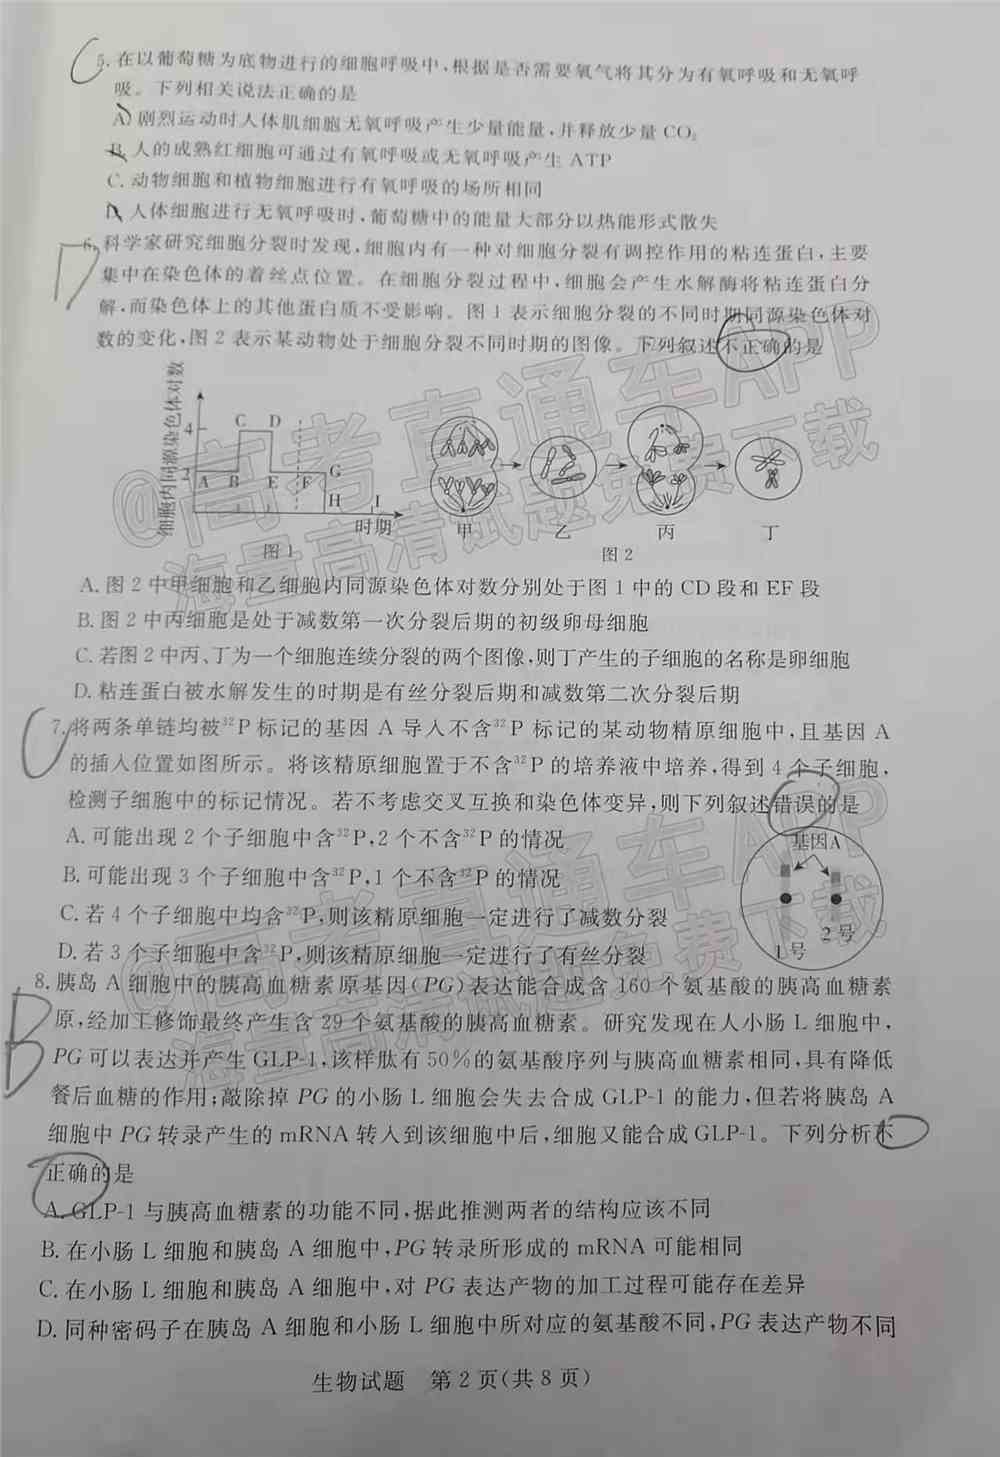 5. 在以葡萄糖为底物进行的细胞呼吸中,根据是否需要氧气将其分为有氧呼吸和无氧呼
吸。下列相关说法正确的是
A. 剧烈运动时人体肌细胞无氧呼吸产生少量能量,并释放少量 CO₂
B. 人的成熟红细胞可通过有氧呼吸或无氧呼吸产生 ATP
C. 动物细胞和植物细胞进行有氧呼吸的场所相同
D. 人体细胞进行无氧呼吸时,葡萄糖中的能量大部分以热能形式散失
6. 科学家研究细胞分裂时发现,细胞内有一种对细胞分裂有调控作用的粘连蛋白,主要
集中在染色体的着丝点位置。在细胞分裂过程中,细胞会产生水解酶将粘连蛋白分
解,而染色体上的其他蛋白质不受影响。图 1 表示细胞分裂的不同时期同源染色体对
数的变化,图 2 表示某动物处于细胞分裂不同时期的图像。下列叙述不正确的是
细胞内同源染色体对数
4
2
C D
A B E F G
H I
时期
图 1
甲 乙 丙 丁
图 2
A. 图 2 中甲细胞和乙细胞内同源染色体对数分别处于图 1 中的 CD 段和 EF 段
B. 图 2 中丙细胞是处于减数第一次分裂后期的初级卵母细胞
C. 若图 2 中丙、丁为一个细胞连续分裂的两个图像,则丁产生的子细胞的名称是卵细胞
D. 粘连蛋白被水解发生的时期是有丝分裂后期和减数第二次分裂后期
7. 将两条单链均被³²P 标记的基因 A 导入不含³²P 标记的某动物精原细胞中,且基因 A
的插入位置如图所示。将该精原细胞置于不含³²P 的培养液中培养,得到 4 个子细胞,
检测子细胞中的标记情况。若不考虑交叉互换和染色体变异,则下列叙述错误的是
A. 可能出现 2 个子细胞中含³²P,2 个不含³²P 的情况
B. 可能出现 3 个子细胞中含³²P,1 个不含³²P 的情况
C. 若 4 个子细胞中均含³²P,则该精原细胞一定进行了减数分裂
D. 若 3 个子细胞中含³²P,则该精原细胞一定进行了有丝分裂
基因A
1号
2号
8. 胰岛 A 细胞中的胰高血糖素原基因(PG)表达能合成含 160 个氨基酸的胰高血糖素
原,经加工修饰最终产生含 29 个氨基酸的胰高血糖素。研究发现在人小肠 L 细胞中,
PG 可以表达并产生 GLP-1,该样肽有 50%的氨基酸序列与胰高血糖素相同,具有降低
餐后血糖的作用;敲除掉 PG 的小肠 L 细胞会失去合成 GLP-1 的能力,但若将胰岛 A
细胞中 PG 转录产生的 mRNA 转入到该细胞中后,细胞又能合成 GLP-1。下列分析不
正确的是
A. GLP-1 与胰高血糖素的功能不同,据此推测两者的结构应该不同
B. 在小肠 L 细胞和胰岛 A 细胞中,PG 转录所形成的 mRNA 可能相同
C. 在小肠 L 细胞和胰岛 A 细胞中,对 PG 表达产物的加工过程可能存在差异
D. 同种密码子在胰岛 A 细胞和小肠 L 细胞中所对应的氨基酸不同,PG 表达产物不同
生物试题 第 2 页(共 8 页)
C
D
C
B
@高考直通车APP
海量高清试题免费下载
@高考直通车APP
海量高清试题免费下载